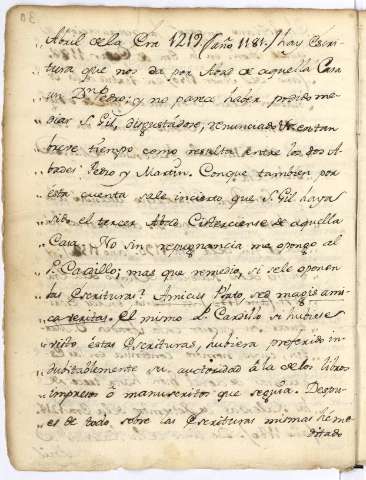 Abril de la Era 1219 (año 1181.) hay Escri-
„ tura que nos da por Abad de aquella Casa
„ un Dn. Pedro; y no parece haber podido me-
„ diar S. Gil, disgustádose, renunciado en tan
„ breve tiempo como resulta entre los dos A-
„ bades Pedro y Martin. Conque tambien por
„ esta cuenta sale incierto, que S. Gil haya
„ sido el tercer Abad Cisterciense de aquella
„ Casa. No sin repugnancia me opongo al
„ P. Cardillo; mas que remedio, si se le oponen
„ las Escrituras? Amicus Plato, sed magis ami-
„ ca veritas. El mismo P. Cardillo si hubiese
„ visto éstas Escrituras, hubiera preferido in-
„ dubitablemente su autoridad à la de los libros
„ impresos ò manuscritos que seguia. Despu-
„ es de todo sobre las Escrituras mismas he me-
ditado